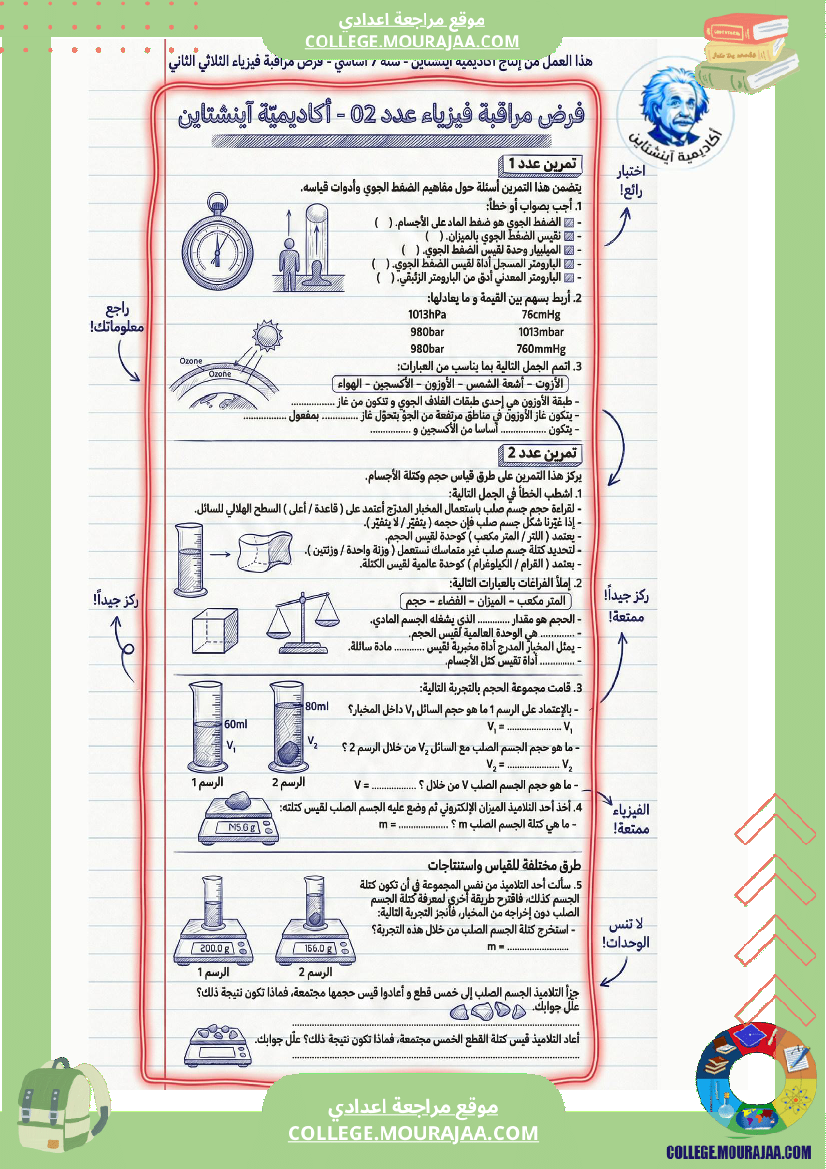 موقع مراجعة اعدادي
COLLEGE.MOURAJAA.COM
هذا العمل من إنتاج أكاديمية آينشتاين - سنة 7 أساسي - فرض مراقبة فيزياء الثلاثي الثاني
فرض مراقبة فيزياء عدد 02 - أكاديميّة آينشتاين
أكاديمية آينشتاين
اختبار
رائع!
تمرين عدد 1
يتضمن هذا التمرين أسئلة حول مفاهيم الضغط الجوي وأدوات قياسه.
1. أجب بصواب أو خطأ:
- الضغط الجوي هو ضغط الماد على الأجسام. ( )
- نقيس الضغط الجوي بالميزان. ( )
- الميليبار وحدة لقيس الضغط الجوي. ( )
- البارومتر المسجل أداة لقيس الضغط الجوي. ( )
- البارومتر المعدني أدق من البارومتر الزئبقي. ( )
2. أربط بسهم بين القيمة و ما يعادلها:
76cmHg 1013hPa
1013mbar 980bar
760mmHg 980bar
راجع
معلوماتك!
Ozone
Ozone
3. اتمم الجمل التالية بما يناسب من العبارات:
الأزوت – أشعة الشمس – الأوزون – الأكسجين – الهواء
- طبقة الأوزون هي إحدى طبقات الغلاف الجوي و تتكون من غاز .................
- يتكون غاز الأوزون في مناطق مرتفعة من الجوّ بتحوّل غاز .............. بمفعول .................
- يتكون ................. أساسا من الأكسجين و ................
تمرين عدد 2
يركز هذا التمرين على طرق قياس حجم وكتلة الأجسام.
1. اشطب الخطأ في الجمل التالية:
- لقراءة حجم جسم صلب باستعمال المخبار المدرّج أعتمد على ( قاعدة / أعلى ) السطح الهلالي للسائل.
- إذا غيّرنا شكل جسم صلب فإن حجمه ( يتغيّر / لا يتغيّر ).
- يعتمد ( اللتر / المتر مكعب ) كوحدة لقيس الحجم.
- لتحديد كتلة جسم صلب غير متماسك نستعمل ( وزنة واحدة / وزنتين ).
- يعتمد ( القرام / الكيلوغرام ) كوحدة عالمية لقيس الكتلة.
2. إملأ الفراغات بالعبارات التالية:
المتر مكعب – الميزان – الفضاء – حجم
- الحجم هو مقدار ............. الذي يشغله الجسم المادي.
- ............. هي الوحدة العالمية لقيس الحجم.
- يمثل المخبار المدرج أداة مخبرية لقيس ............ مادة سائلة.
- .............. أداة تقيس كتل الأجسام.
ركز جيداً!
ركز جيداً!
ممتعة!
3. قامت مجموعة الحجم بالتجربة التالية:
- بالإعتماد على الرسم 1 ما هو حجم السائل V1 داخل المخبار؟
V1 = ..................... V1
- ما هو حجم الجسم الصلب مع السائل V2 من خلال الرسم 2 ؟
V2 = .................... V2
- ما هو حجم الجسم الصلب V من خلال ؟ ................. = V
60ml
V1
80ml
V2
الرسم 1
الرسم 2
4. أخذ أحد التلاميذ الميزان الإلكتروني ثم وضع عليه الجسم الصلب لقيس كتلته:
- ما هي كتلة الجسم الصلب m ؟ ................... = m
الفيزياء
ممتعة!
طرق مختلفة للقياس واستنتاجات
5. سألت أحد التلاميذ من نفس المجموعة في أن تكون كتلة
الجسم كذلك، فاقترح طريقة أخرى لمعرفة كتلة الجسم
الصلب دون إخراجه من المخبار، فأنجز التجربة التالية:
- استخرج كتلة الجسم الصلب من خلال هذه التجربة؟
m = ........................
200.0 g
166.0 g
الرسم 1
الرسم 2
لا تنس
الوحدات!
جزأ التلاميذ الجسم الصلب إلى خمس قطع و أعادوا قيس حجمها مجتمعة، فماذا تكون نتيجة ذلك؟
علّل جوابك.
أعاد التلاميذ قيس كتلة القطع الخمس مجتمعة، فماذا تكون نتيجة ذلك؟ علّل جوابك.
موقع مراجعة اعدادي
COLLEGE.MOURAJAA.COM
COLLEGE.MOURAJAA.COM